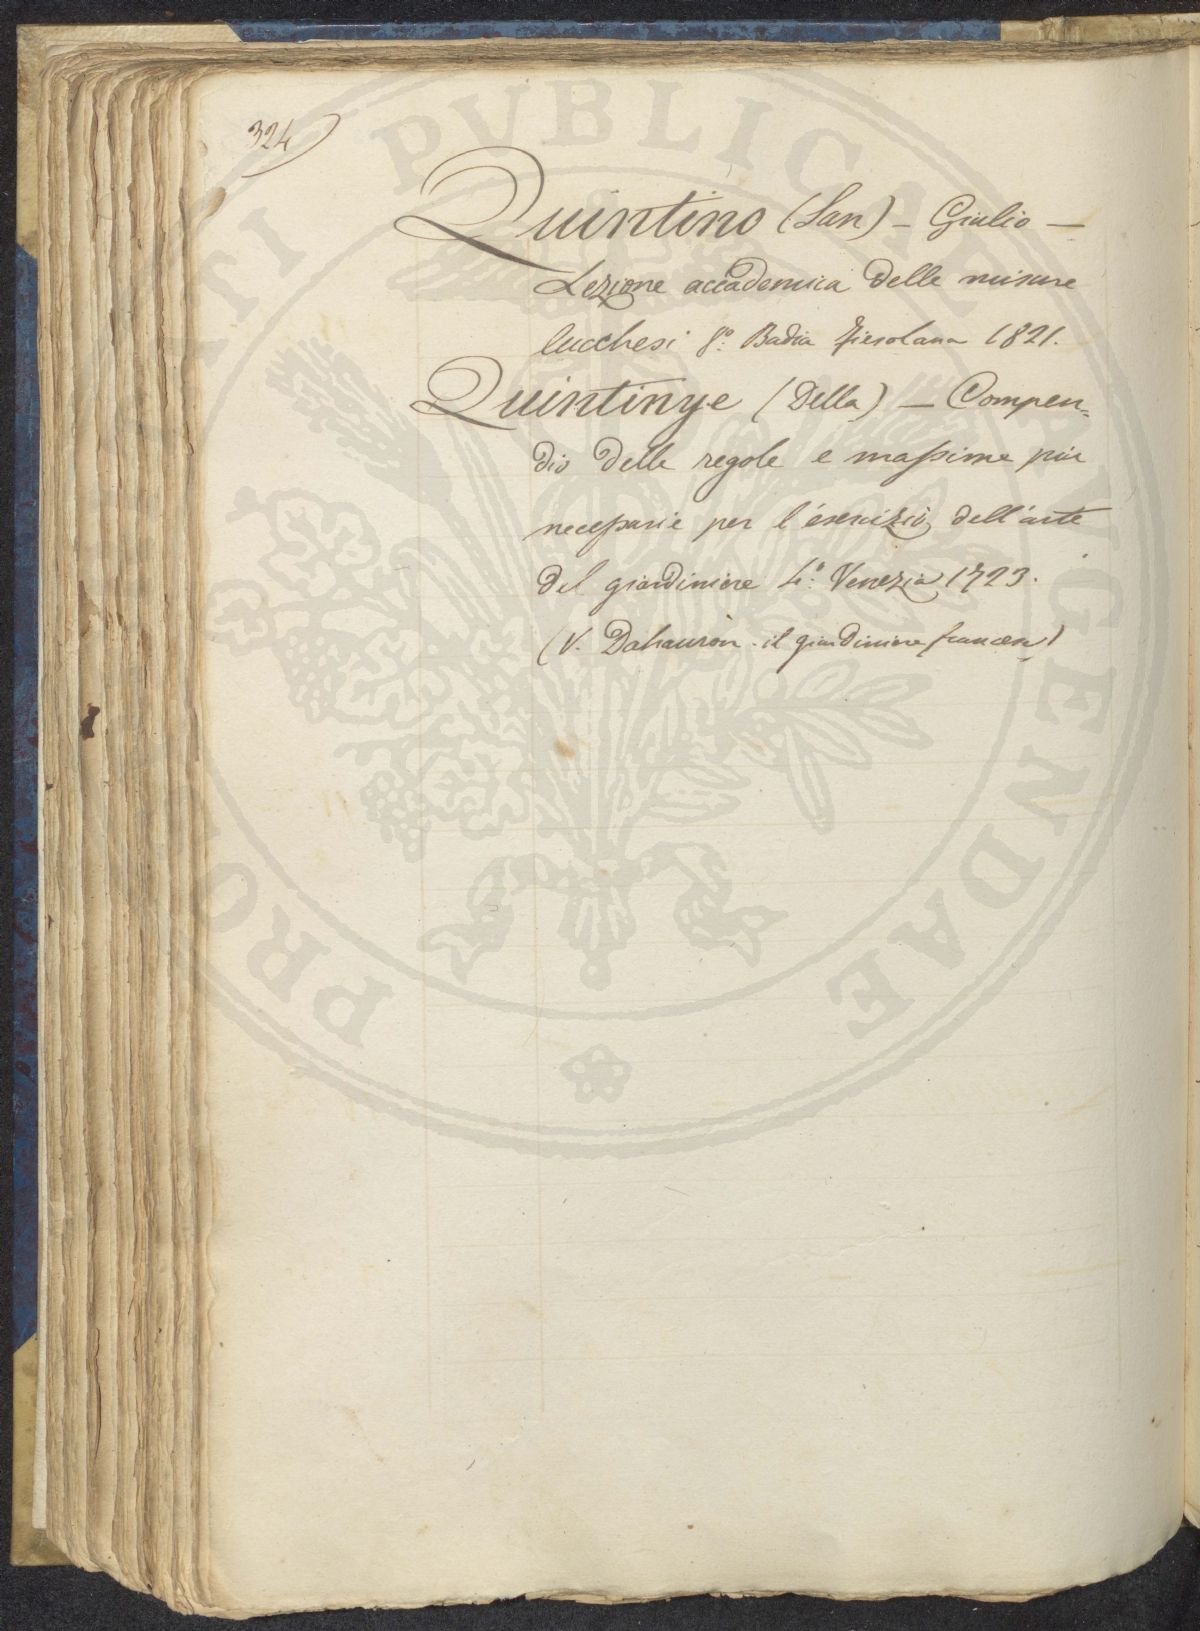 324)
Quintino (San) – Giulio –
Lezione accademica delle misure
lucchesi 8.° Badia Fiesolana 1821.
Quintinye (Della) – Compen=
dio delle regole e massime più
necessarie per l'esercizio dell'arte
del giardiniere 4.° Venezia 1723.
(V. Dahauron. il giardiniere francese)
PROSPERITATI PVBLICAE AVGENDAE